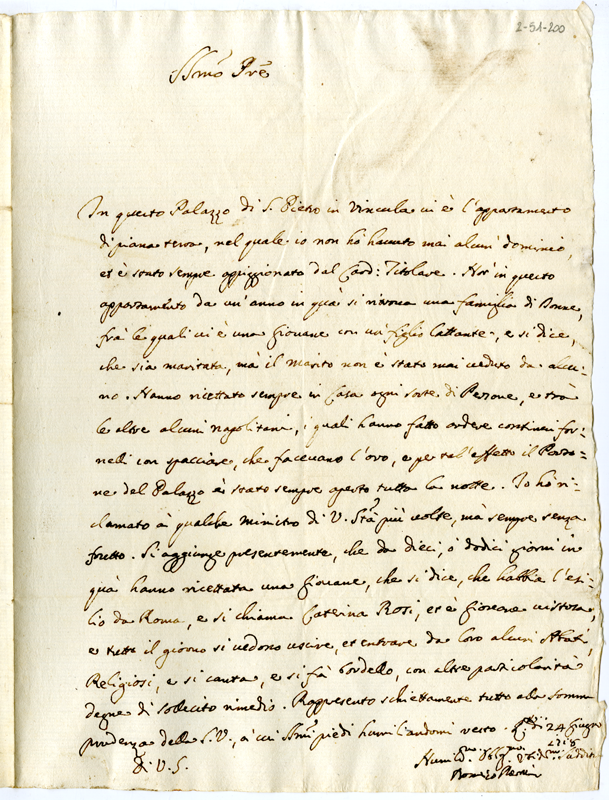 2-51-200
SSmo Pre
In questo Palazzo di S. Pietro in Vincula vi è l'appartamento
di piana terra, nel quale io non hò havuto mai alcun dominio,
et è stato sempre appiggionato dal Card: Titolare. Hor in questo
appartamento da un'anno in quà si ritrova una famiglia di Donne,
frà le quali vi è una Giovane con un figlio lattante, e si dice,
che sia maritata, mà il marito non è stato mai veduto da alcu=
no. Hanno ricettato sempre in Casa ogni sorte di Persone, e trà
le altre alcuni napolitani, i quali hanno fatto ardere continui for=
nelli con spacciare, che facevano l'oro, e per tal'effetto il Porto=
ne del Palazzo è stato sempre aperto tutta la notte. Io hò ri=
clamato à qualche ministro di V. Stà più volte, mà sempre senza
frutto. Si aggiunge presentemente, che da dieci, ò dodici giorni in
quà hanno ricettata una Giovane, che si dice, che habbia l'esi=
lio da Roma, e si chiama Caterina Rosi, et è Giovane vistosa,
e tutto il giorno si vedono uscire, et entrare da loro alcuni Abati,
Religiosi, e si canta, e si fà bordello, con altre particolarità
degne di sollecito rimedio. Rappresento schiettamente tutto alla somma
prudenza della S.V., a cui SSmi piedi humiliandomi resto. Qsto dì 24 Giugno
di V. S. Hum